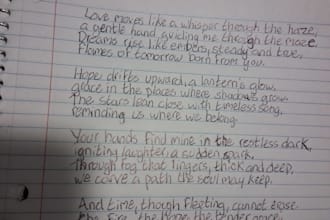 Love moves like a whisper through the haze,
a gentle hand, guiding me through the maze.
Dreams rise like embers, steady and true,
flames of tomorrow born from you.
Hope drifts upward, a lantern's glow,
grace in the places where shadows grow.
The stars lean close with timeless song,
reminding us where we belong.
Your hands find mine in the restless dark,
igniting laughter, a sudden spark.
Through fog that lingers, thick and deep,
we carve a path the soul may keep.
And time, though fleeting, cannot erase
the fire, the hope, the tender grace.